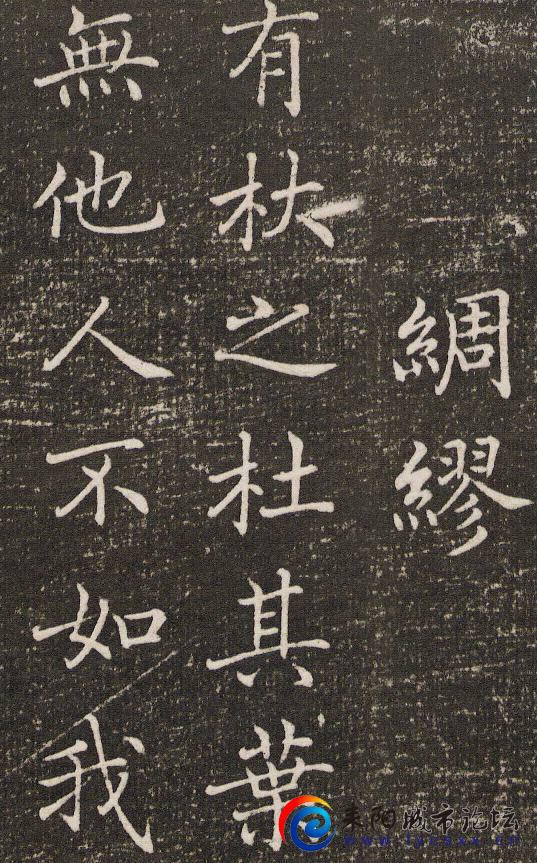 綢繆
有杕之杜其葉
無他人不如我
耒阳城市论坛
www.lycsxx.cn